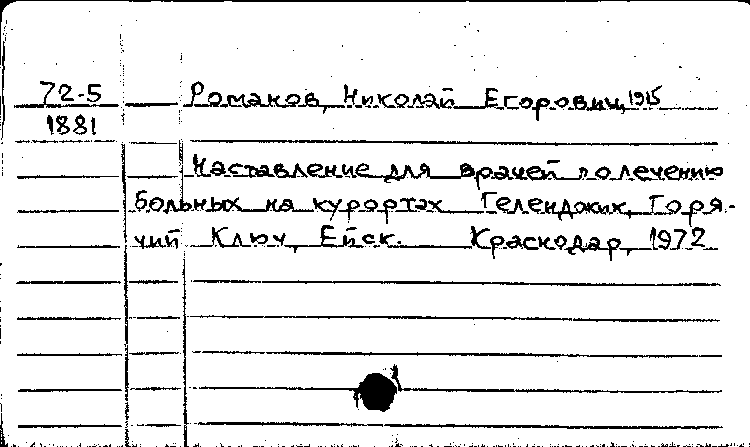 72-5 Романов, Николай Егорович, 1915
1881
Наставление для врачей по лечению
больных на курортах Геленджик, Горя-
чий Ключ, Ейск. Краснодар, 1972